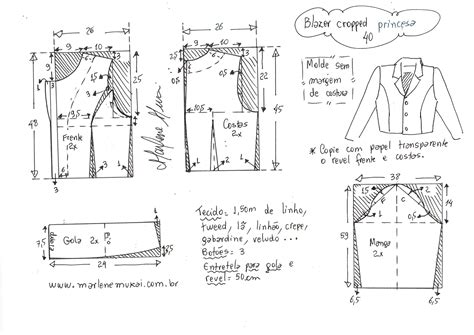 Blazer cropped princesa
40
Molde sem
margem
de costura
* Copie com papel transparente
o revel frente e costas.
26
9
10
9
3
1,5
3
25
13,5
3
48
Frente
2x
1
1
3
Marlene Mukai
26
10
3
22
45
10,5
0,5
Costas
2x
1
1
38
15
2
F
C
0,5
14
59
Manga
2x
6,5
6,5
7,5
dobra
Gola 2x
29
8,5
Tecido= 1,50m de linho,
tweed, lã, linhão, crepe,
gabardine, veludo ...
Botões= 3
Entretela para gola e
revel= 50cm
www.marlenemukai.com.br